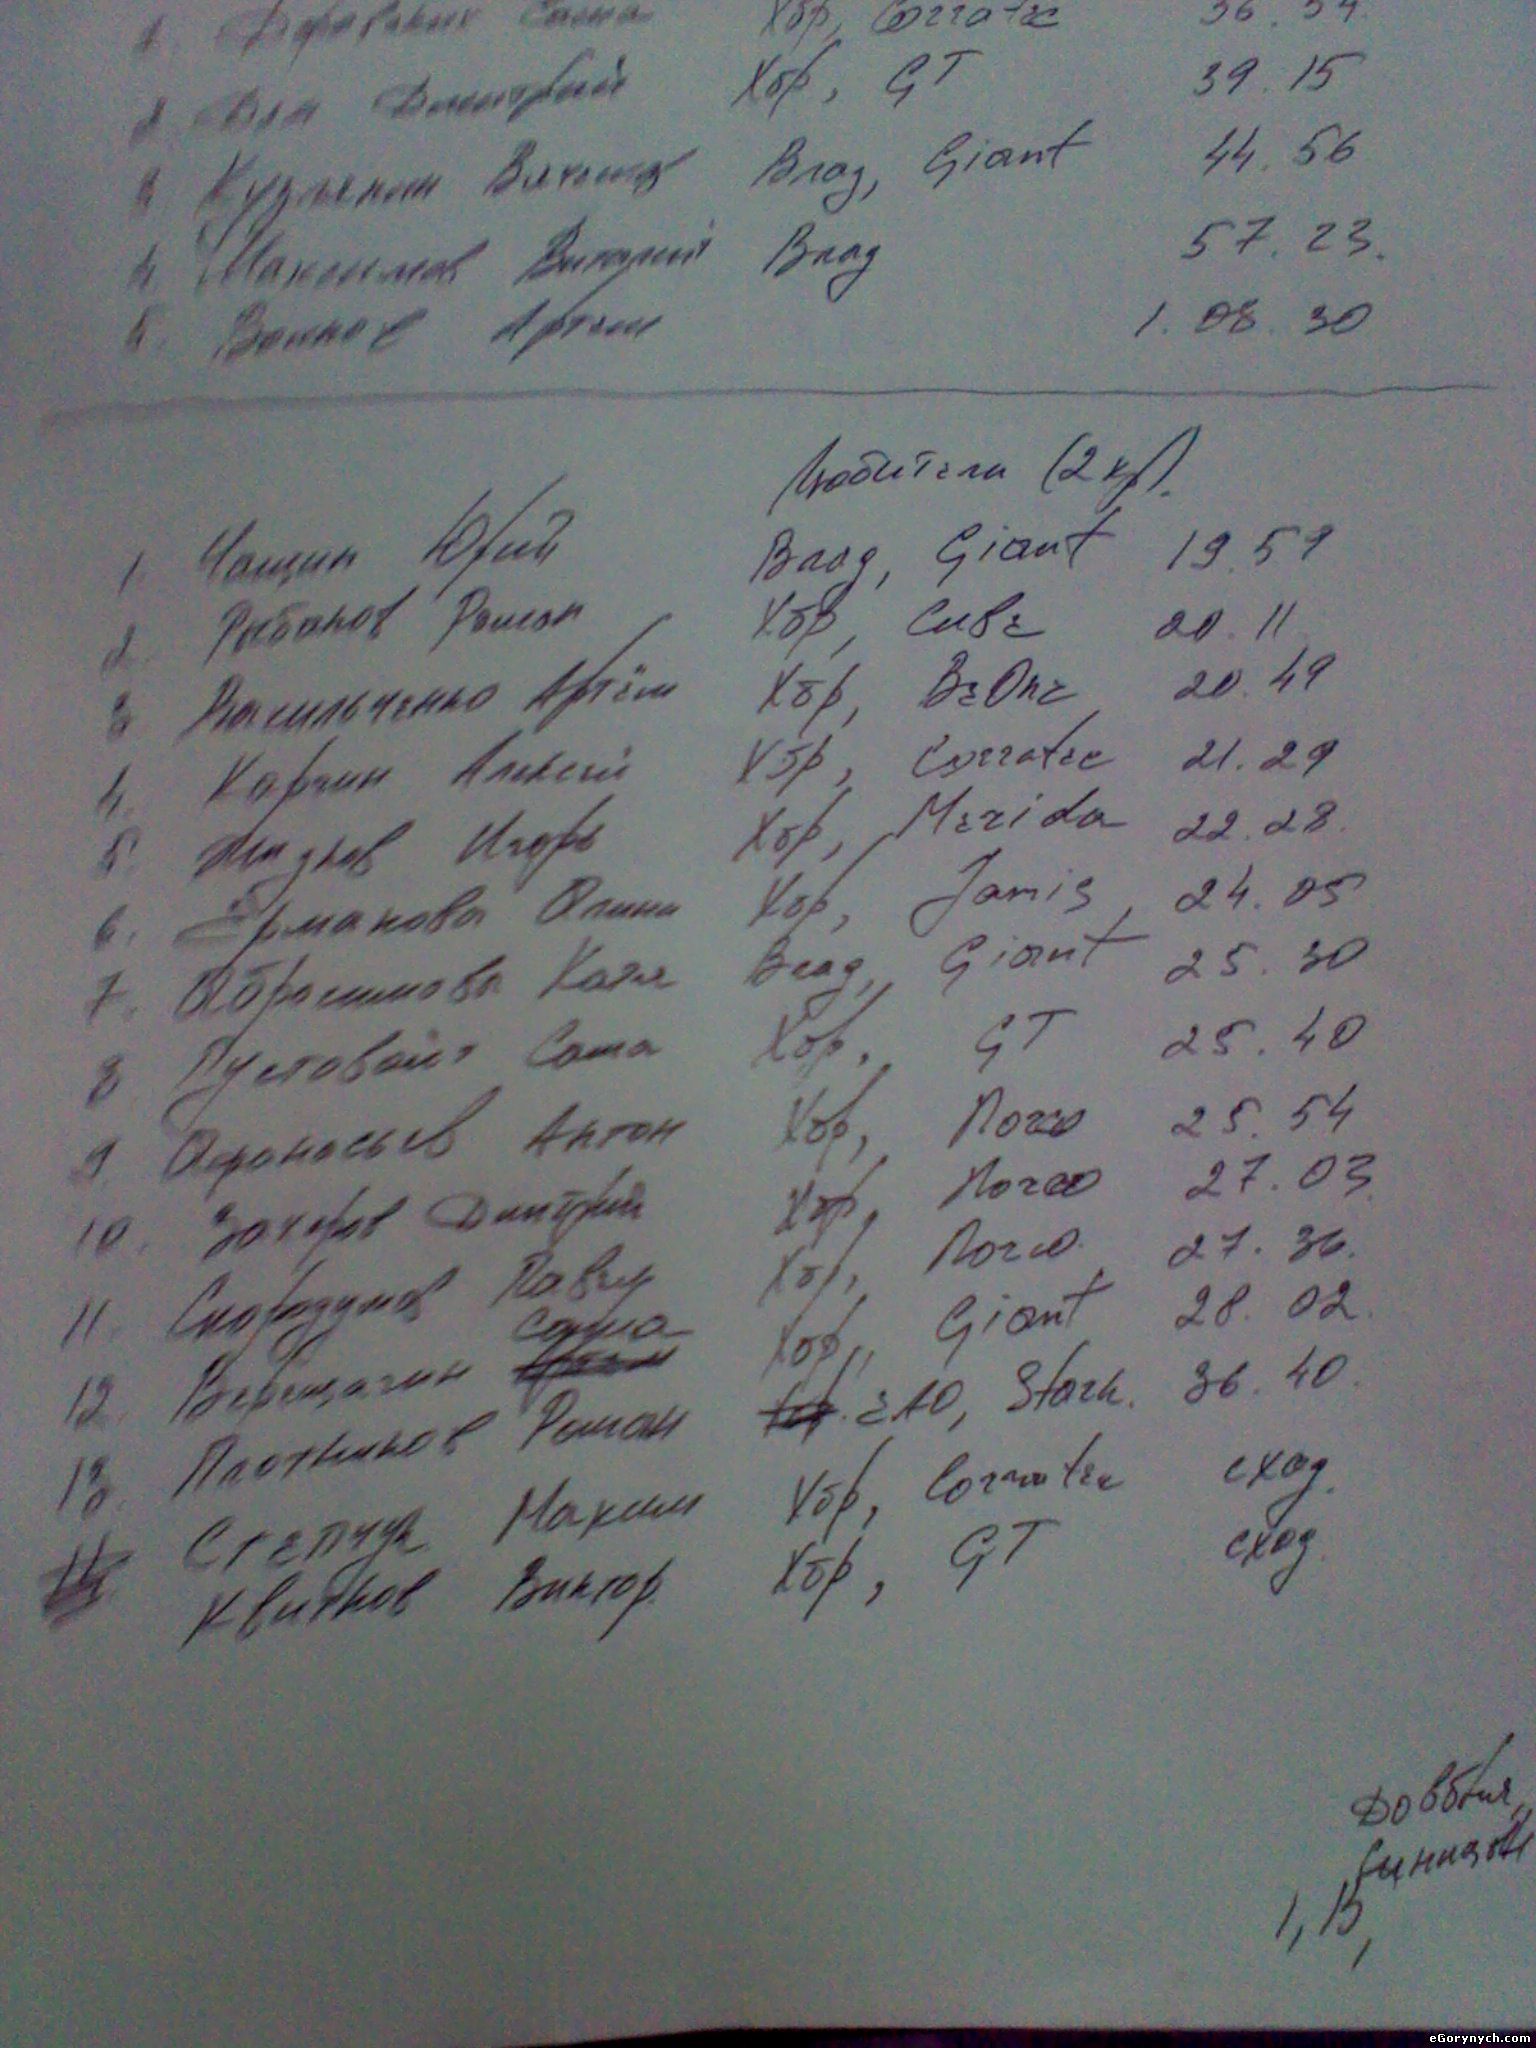 1. Саша Хбр, Corratec 36.54
2. Ван Дмитрий Хбр, GT 39.15
3. Вячеслав Влад, Giant 44.56
4. Максимов Виталий Влад 57.23.
5. Артём 1.08.30
Любители (2 кр).
1. Чащин Юрий Влад, Giant 19.59
2. Рыбаков Роман Хбр, Cube 20.11
3 Васильченко Артём Хбр, BeOne 20.49
4. Каргин Алексей Хбр, Corratec 21.29
5. Игорь Хбр, Merida 22.28.
6. Ермакова Алина Хбр, Jamis, 24.05
7. Абросимова Катя Влад, Giant 25.30
8 Пустовойт Саша Хбр, GT 25.40
9 Афанасьев Антон Хбр, Norco 25.54
10. Захаров Дмитрий Хбр, Norco 27.03
11. Скоразумов Павел Хбр, Norco. 27.36.
12. Верещагин Саша Хбр, Giant 28.02.
13. Плотников Роман ЕАО, Stark. 36.40.
14 Степчук Максим Хбр, Corratec сход.
Квитков Виктор. Хбр, GT сход.
1, В,
eGorynych.com